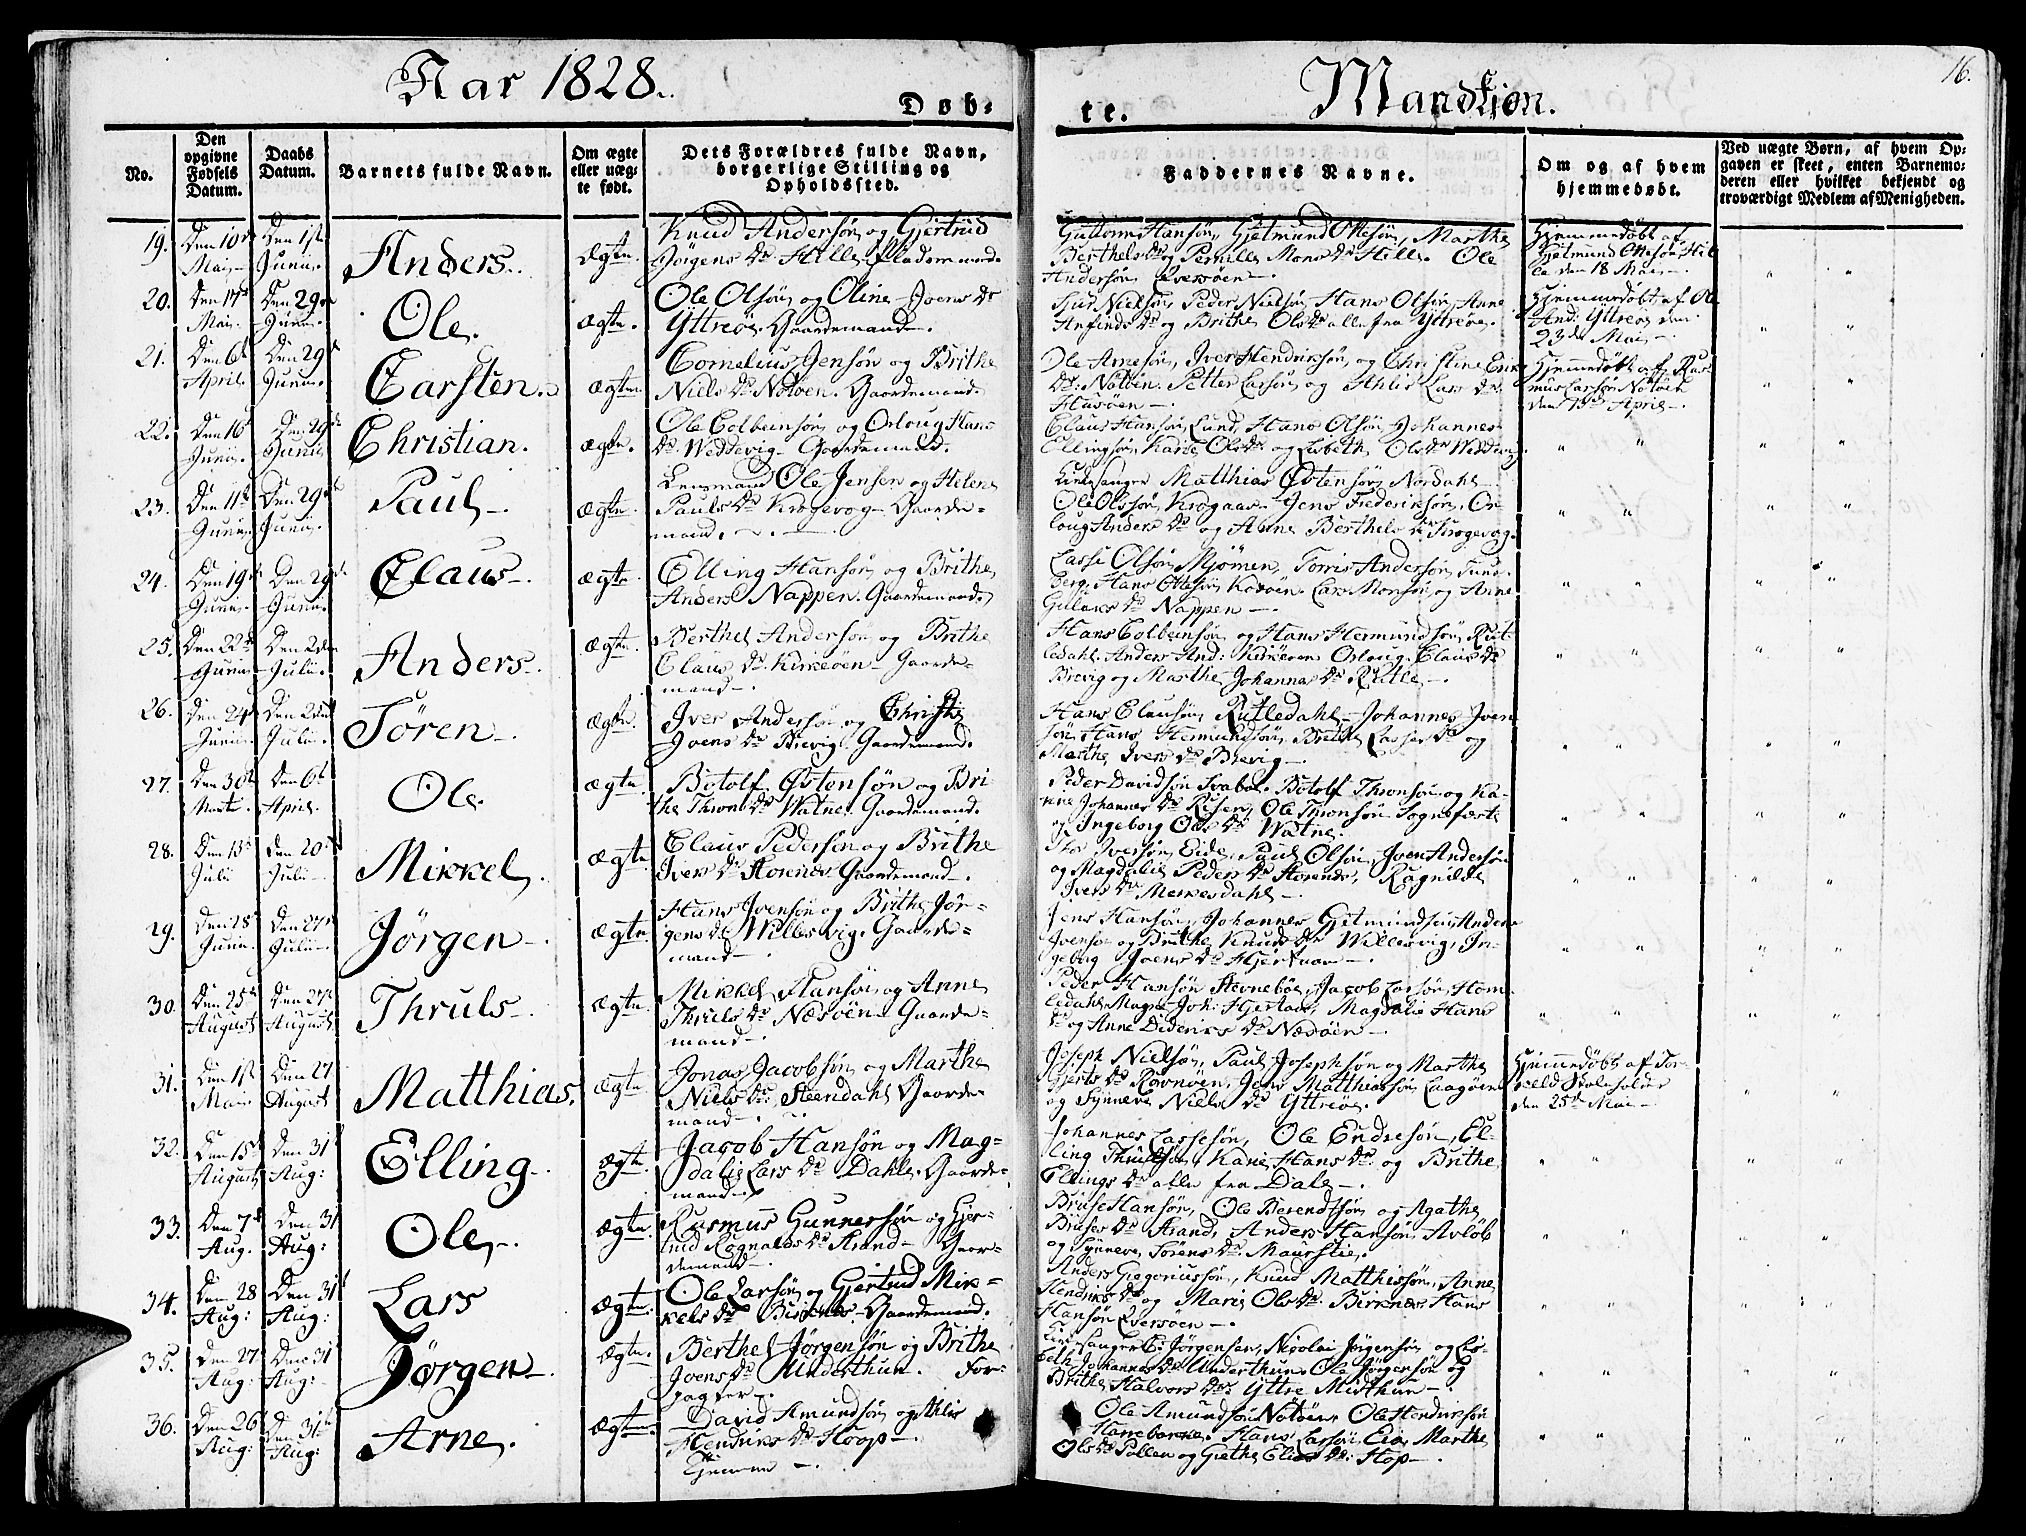 Aar 1828.
Døb-
te.
Mandkjøn.
16.
No.
Den opgivne Fødsels Datum.
Daabs Datum.
Barnets fulde Navn.
Om ægte eller uæg-
te født.
Dets Forældres fulde Navn,
borgerlige Stilling og
Opholdssted.
Faddernes Navne.
Om og af hvem
hjemmedøbt.
Ved uægte Børn, af hvem Op-
gaven er skeet, enten Barnemo-
deren eller hvilket bekjendt og
troværdigt Medlem af Menigheden.
19. Den 10de Mai. Den 1ste Junii. Anders. Ægte. Knud Andersøn og Gjertrud
Jørgens Dr Hille. Gaardemand.
Guttorm Hansøn, Gjetmund Ottesøn, Marthe
Berthels Dr og Pernille Mons Dr Hille. Ole
Andersøn Eversøen.
Hjemmedøbt af
Gjetmund Ottesøn Hil-
le den 18 Mai.
20. Den 17de Mai. Den 29de Junii. Ole. Ægte. Ole Olsøn og Oline Joens Dr
Yttreøe. Gaardemand.
Siur Nielsøn, Peder Nielsøn, Hans Olsøn, Anne
Anfinds Dr og Brithe Ols Dr alle fra Yttreøe.
Hjemmedøbt af Ole
And: Yttreøe den
23de Mai.
21. Den 6te April. Den 29de Junii. Carsten. Ægte. Cornelius Jensøn og Brithe
Niels Dr Notøen. Gaardemand.
Ole Arnesøn, Iver Hendriksøn og Christine Erik
Dr. Notøen. Petter Larsøn og Ahlis Lars Dr
Husøen.
Hjemmedøbt af Ras-
mus Larsøn Notøen
den 13de April.
22. Den 16de Junii. Den 29de Junii. Christian. Ægte. Ole Colbeinsøn og Orloug Hans
Dr. Weddevig. Gaardemand.
Claus Hansøn Lund, Hans Olsøn, Johannes
Ellingsøn, Karie Ols Dr og Lisbeth Ols Dr Weddevig.
23. Den 11te Junii. Den 29de Junii. Paul. Ægte. Lensmand Ole Jensen og Helene
Pauls Dr Krogevog. Gaarde-
mand.
Kirkesanger Matthias Østensøn Nordahl.
Ole Olsøn Krogaas. Jens Frederiksøn, Or-
loug Anders Dr og Anne Berthels Dr Krogevog.
24. Den 19de Junii. Den 29de Junii. Claus. Ægte. Elling Hansøn og Brithe
Anders Nappen. Gaardemand.
Lasse Olsøn Mjømen, Torris Andersøn
Hans Ottesøn Lars Monsøn og Anne
Nappen.
25. Den 22de Junii. Den 2den Julii. Anders. Ægte. Berthel Andersøn og Brithe
Claus Dr. Kirkeøen. Gaarde-
mand.
Hans Colbeinsøn og Hans Hermundsøn Rut-
ledahl. Anders And: Kirkeøen. Orloug Claus Dr
Brevig og Marthe Johannes Dr Rutle.
26. Den 24de Junii. Den 2den Julii. Søren. Ægte. Iver Andersøn og Christi
Joens Dr Brevig. Gaardemand.
Hans Clausøn Rutledahl. Johannes Joen-
søn, Hans Hermundsøn, Brithe Lasses Dr og
Marthe Ivers Dr Brevig.
27. Den 30te Marts. Den 6te April. Ole. Ægte. Botolf Østensøn og Bri-
the Thrond Dr Watne. Gaardemand.
Peder Davidsøn Svaboe. Botolf Thronsøn og Ka-
rine Johannes Dr Risen, Ole Thronsøn Sognefæste
og Ingeborg Ols Dr Watne.
28. Den 13de Julii. Den 20de Julii. Mikkel. Ægte. Claus Pedersøn og Brithe
Ivers Dr Storenæs. Gaardemand.
Iversøn Eide, Paul Olsøn, Joen Andersøn
og Magdalie Peders Dr Storenæs, Ragnilde
Ivers Dr Merkesdahl.
29. Den 28de Junii. Den 27de Julii. Jørgen. Ægte. Hans Joensøn og Brithe Jør-
gens Dr Willesvig. Gaarde-
mand.
Jens Hansøn, Johannes Gjetmundsøn, Anders
Joensøn og Brithe Knuds Dr Willesvig. In-
geborg Joens Dr Hjertnær.
30. Den 25de August. Den 27de August. Thruls. Ægte. Mikkel Hansøn og Anne
Thruls Dr Næsøen. Gaarde-
mand.
Peder Hansøn Stevnebøe, Jacob Larsøn Hom-
ledahl. Magne Joh: Hjertaas, Magdalie Hans
Dr og Anne Dideriks Dr Næsøen.
31. Den 1ste Mai. Den 27 August. Matthias. Ægte. Jonas Jacobsøn og Marthe
Niels Dr. Steendahl. Gaarde-
mand.
Joseph Nielsøn, Paul Josephsøn og Marthe
Gjerts Dr Ravnøen, Jens Matthiassøn Laagøen
og Synneve Niels Dr Yttreøe.
Hjemmedøbt af Tor-
veld Skoleholder
den 25de Mai.
32. Den 15de August. Den 31te Aug: Elling. Ægte. Jacob Hansøn og Mag-
dalie Lars Dr Dahle. Gaarde-
mand.
Johannes Lassesøn, Ole Endresøn, El-
ling Thrulsøn, Karie Hans Dr. og Brithe
Ellings Dr alle fra Dale.
33. Den 7de Aug. Den 31 Aug: Ole. Ægte. Rasmus Gunnersøn og Gjer-
trud Ragnalds Dr Strand. Gaar-
demand.
Bruse Hansøn, Ole Berendtsøn og Agathe
Bruses Dr Strand, Anders Hansøn Avløb
og Synneve Sørens Dr. Maurstie.
34. Den 28 Aug: Den 31te Aug: Lars Ægte. Ole Larsøn og Gjertrud Mik-
kels Dr Birknes. Gaardemand.
Anders Gregoriussøn, Knud Matthissøn, Anne
Hendriks Dr og Marie Ols Dr. Birknes. Hans
Hansøn Eversøen.
35. Den 27 Aug: Den 31 Aug: Jørgen. Ægte. Berthel Jørgensøn og Brithe
Joens Dr Underthun. For-
pagter.
Kirkesanger E: Jørgensen, Nicolai Jørgensøn og Lis-
beth Johannes Dr Underthun. Ole Jørgensøn og
Brithe Halvors Dr. Yttre Midthun.
36. Den 26 Aug: Den 31te Aug: Arne. Ægte. David Amundsøn og Ahlis
Hendriks Dr Hoop.
Ole Amundsøn Notøen, Ole Hendriksøn
Hannebakke, Hans Larsøn Eie, Marthe
Ols Dr Pollen og Grethe Elias Dr: Hop.